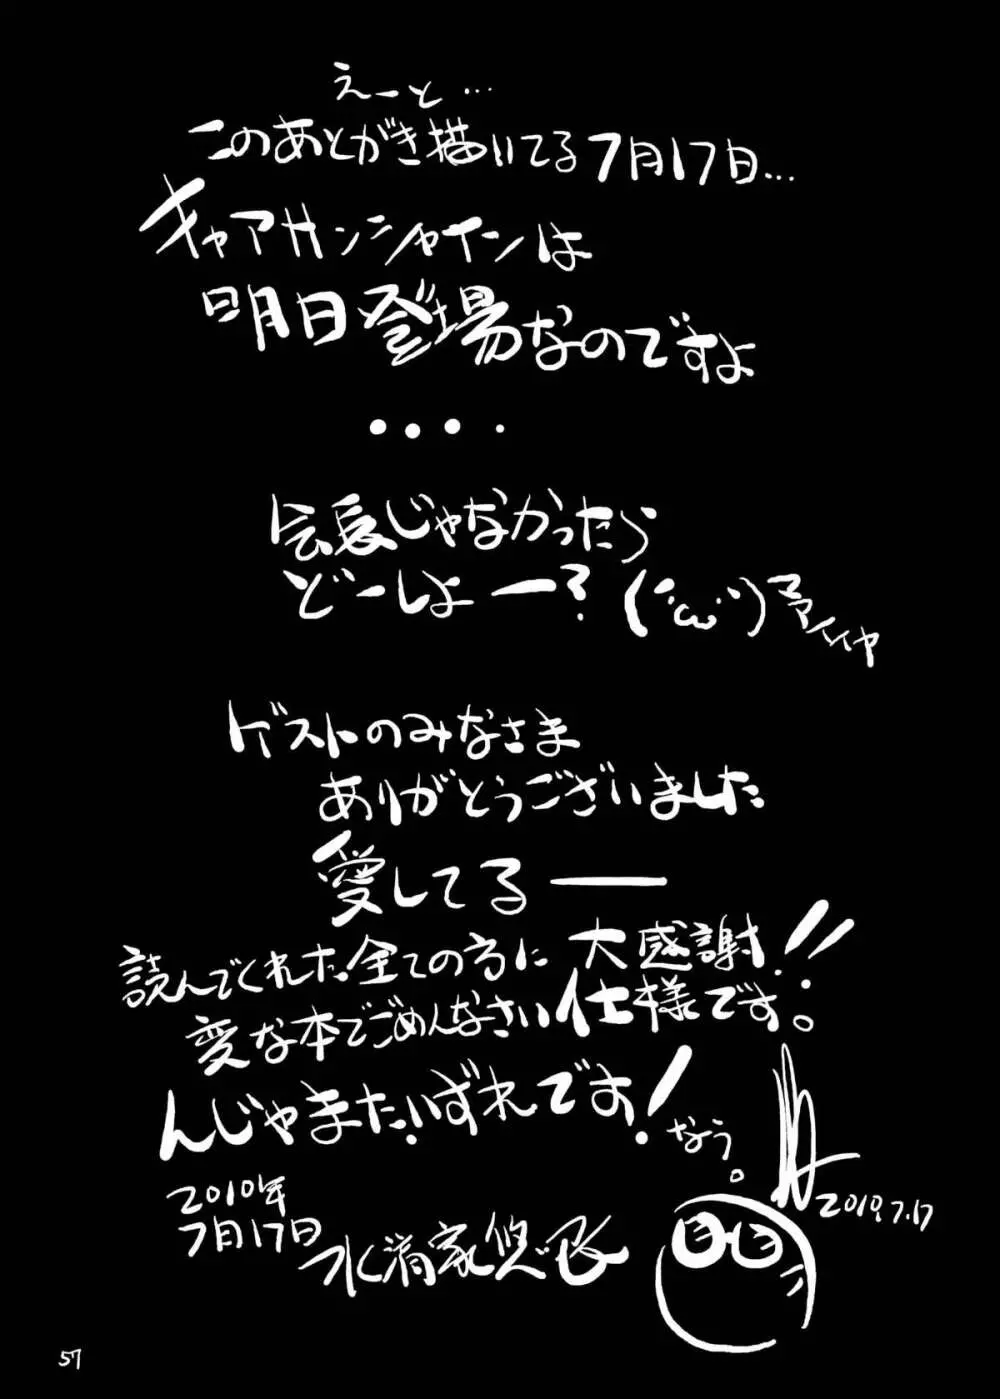 えーと…
このあとがき描いてる7月17日…
キャアサンシャインは
明日登場なのですよ
・・・・
会長じゃなかったら
どーしよー?(´・ω・`)
ゲストのみなさま
ありがとうございました
愛してるー
読んでくれた全ての方に大感謝!!
変な本でごめんなさい仕様です。
んじゃまたいずれです!なう。
2010年
7月17日
2010.7.17
57